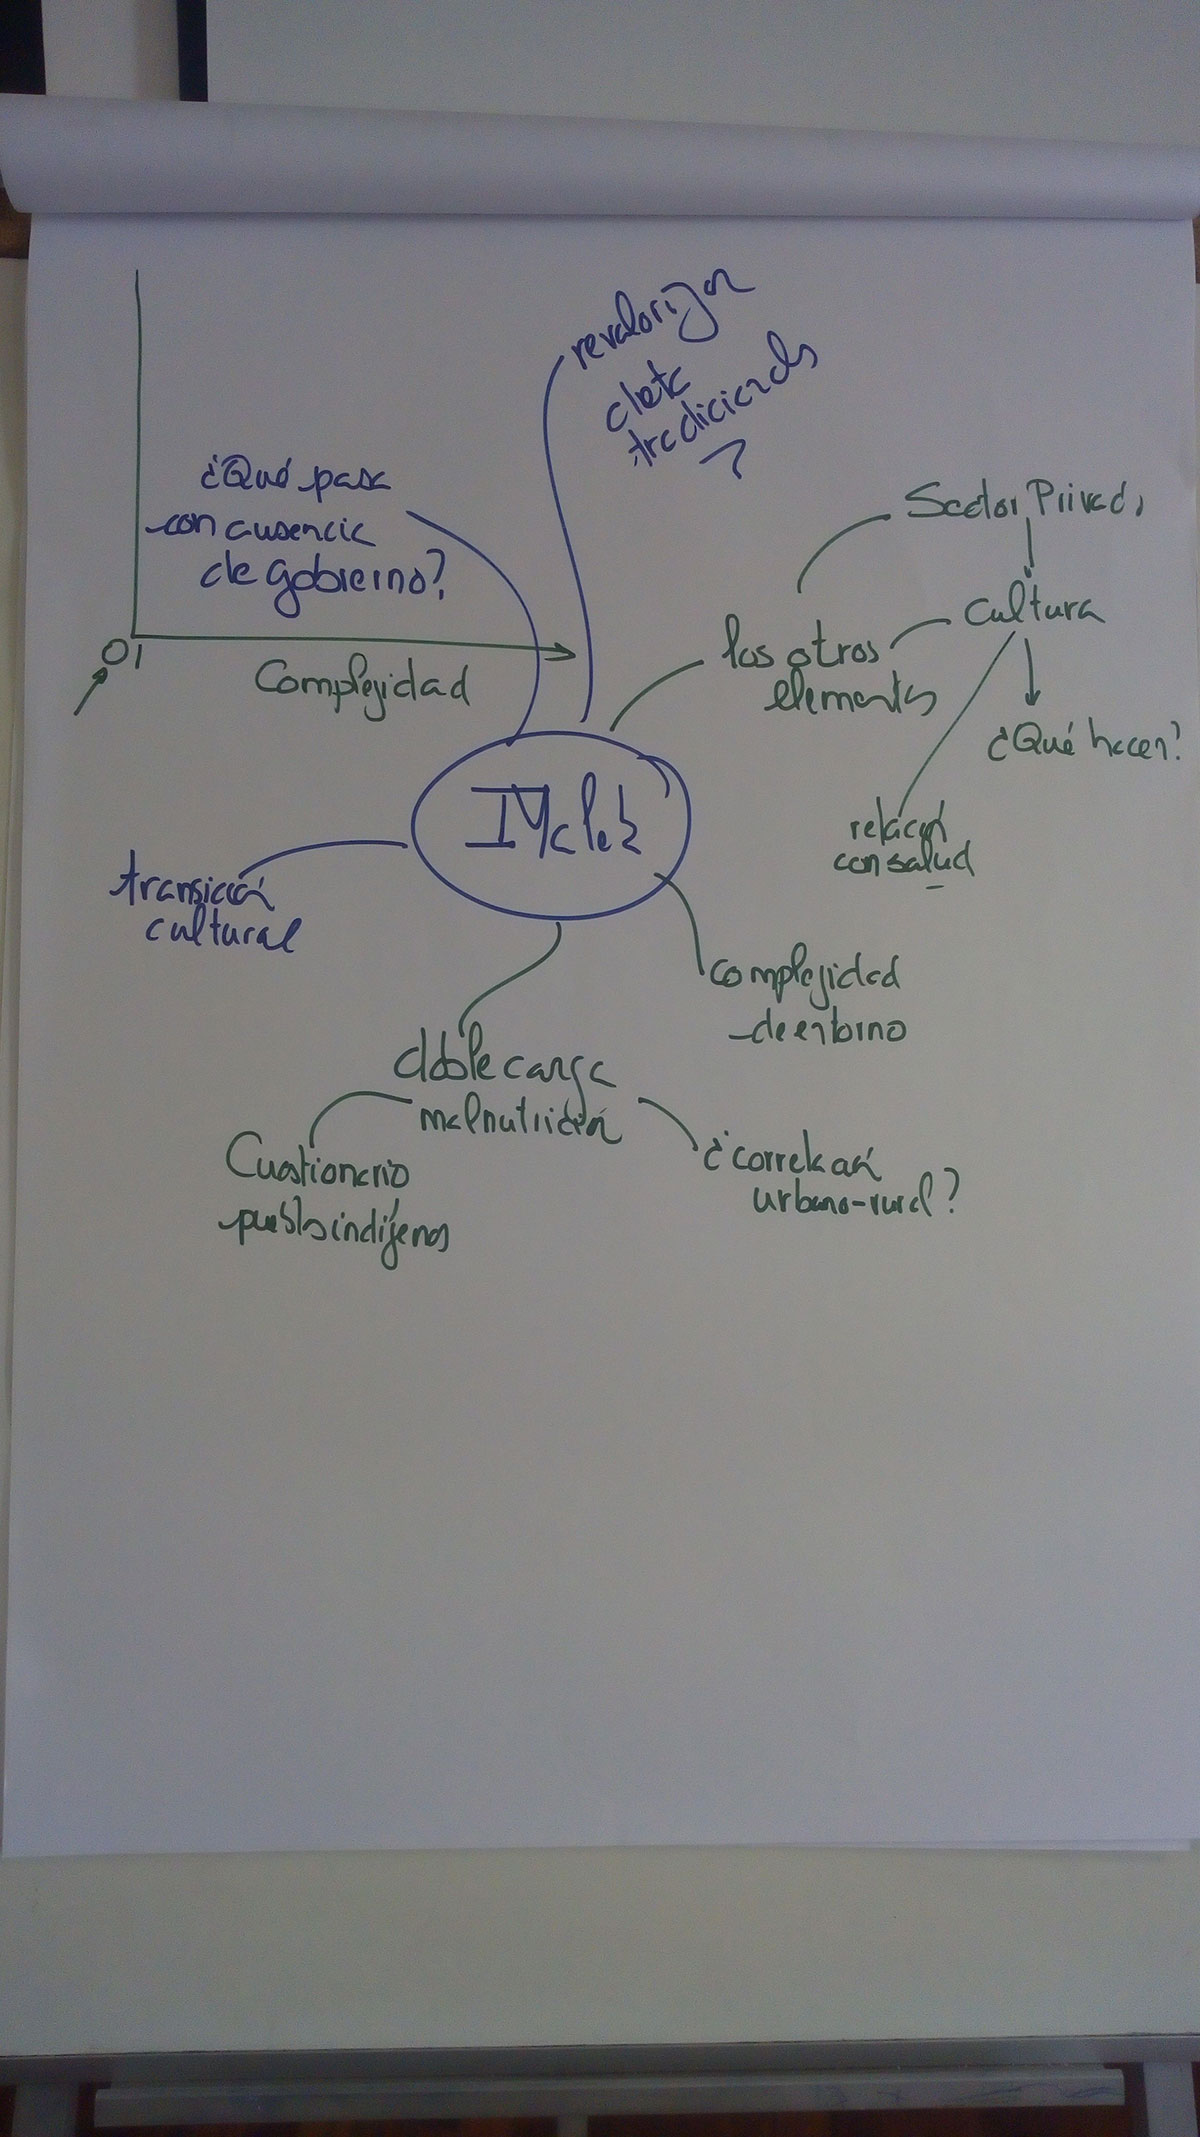 revalorizar
dieta
tradicionals
?
¿Qué pasa
con ausencia
de gobierno?
01
Complejidad
Sector Privado
cultura
¿Qué hacen?
relación
con salud
los otros
elementos
transición
cultural
complejidad
de entorno
doble carga
malnutrición
Cuestionario
pueblos indígenas
¿correlación
urbano-rural?